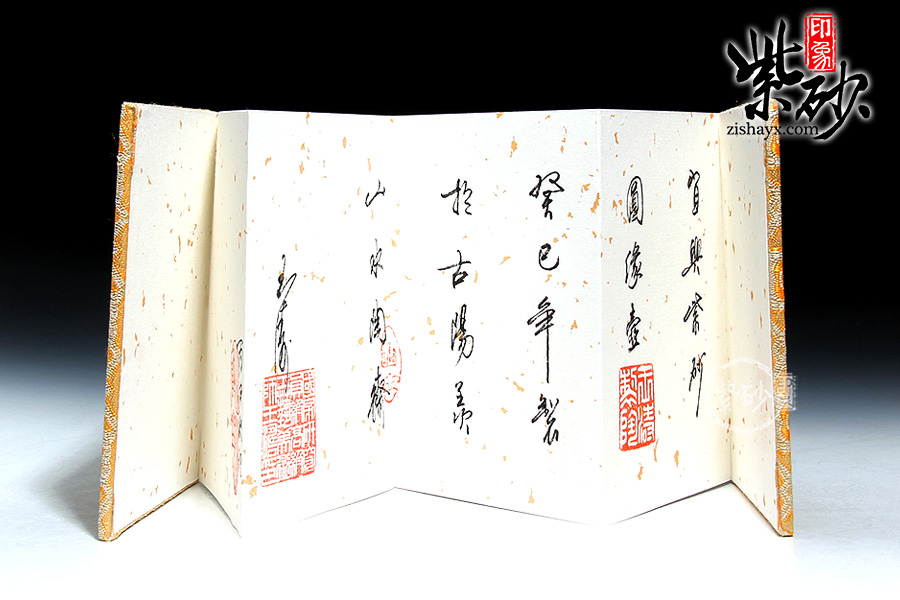 宜興紫砂
圓緣壺
癸巳年製
於古陽羨
山水陶齋
玉清
印象
紫砂
zishayx.com